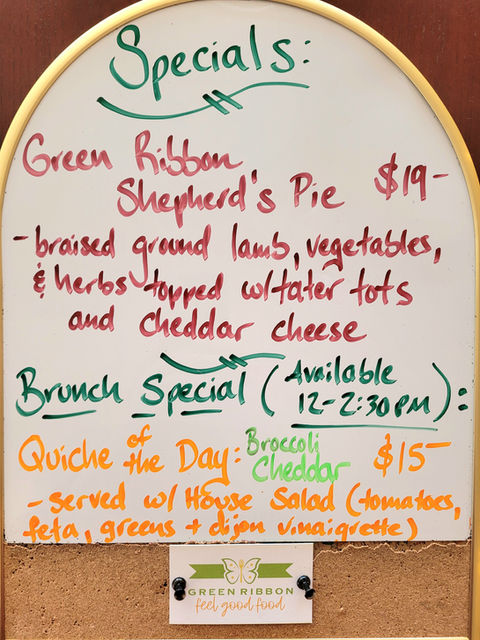 Specials:
Green Ribbon
Shepherd's Pie $19-
- braised ground lamb, vegetables,
& herbs topped w/ tater tots
and cheddar cheese
Brunch Special (Available
12-2:30PM):
Quiche of the Day: Broccoli Cheddar $15-
- served w/ House Salad (tomatoes,
feta, greens + dijon vinaigrette)
GREEN RIBBON
feel good food